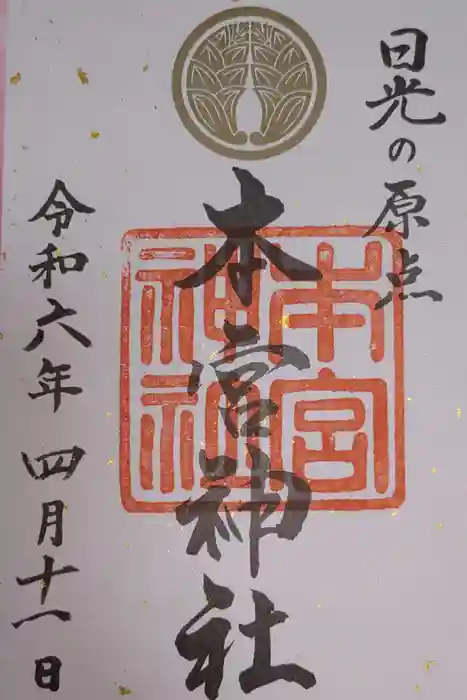 日光の原点
本宮神社
本宮
神社
令和六年 四月十一日